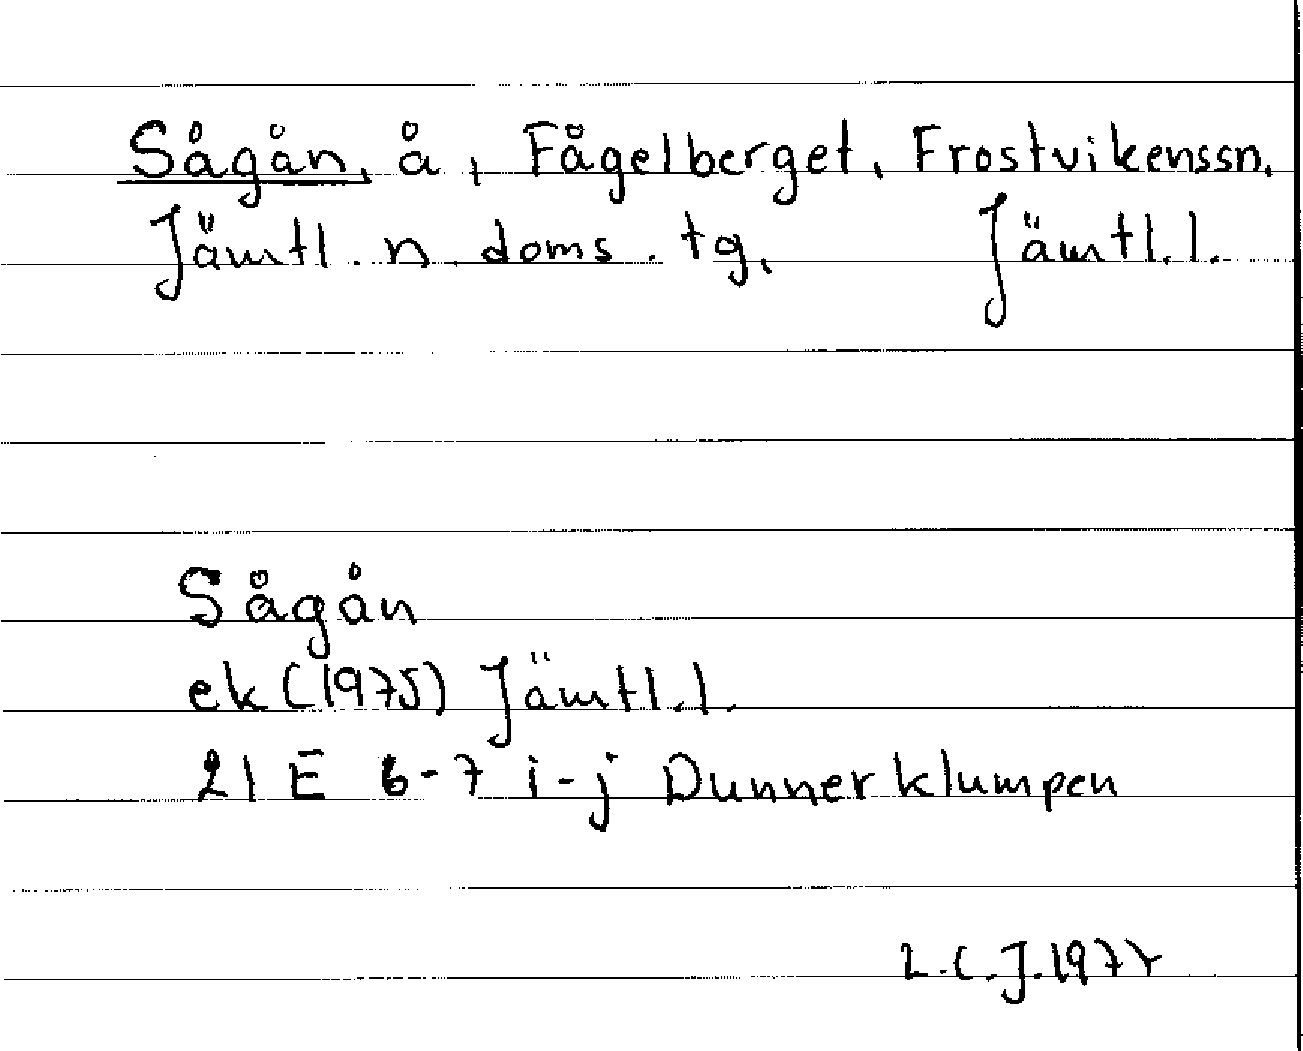 Sågån, å, Fågelberget, Frostvikenssn.
Jämtl. n. doms. tg. Jämtl. l.
Sågån
ek (1975) Jämtl. l.
21 E 6-7 i-j Dunnerklumpen
L.C.J.